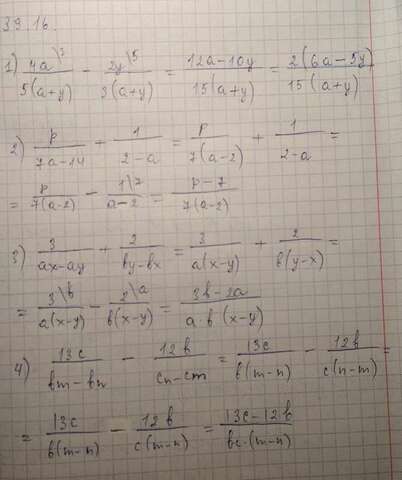 39.16.
1) 4a\3 / 5(a+y) − 2y\5 / 3(a+y) = 12a−10y / 15(a+y) = 2(6a−5y) / 15(a+y)
2) p / 7a−14 + 1 / 2−a = p / 7(a−2) + 1 / 2−a =
= p / 7(a−2) − 1\7 / a−2 = p−7 / 7(a−2)
3) 3 / ax−ay + 2 / by−bx = 3 / a(x−y) + 2 / b(y−x) =
= 3\b / a(x−y) − 2\a / b(x−y) = 3b−2a / a·b(x−y)
4) 13c / bm−bn − 12b / cn−cm = 13c / b(m−n) − 12b / c(n−m) =
= 13c / b(m−n) − 12b / c(m−n) = 13c−12b / bc·(m−n)